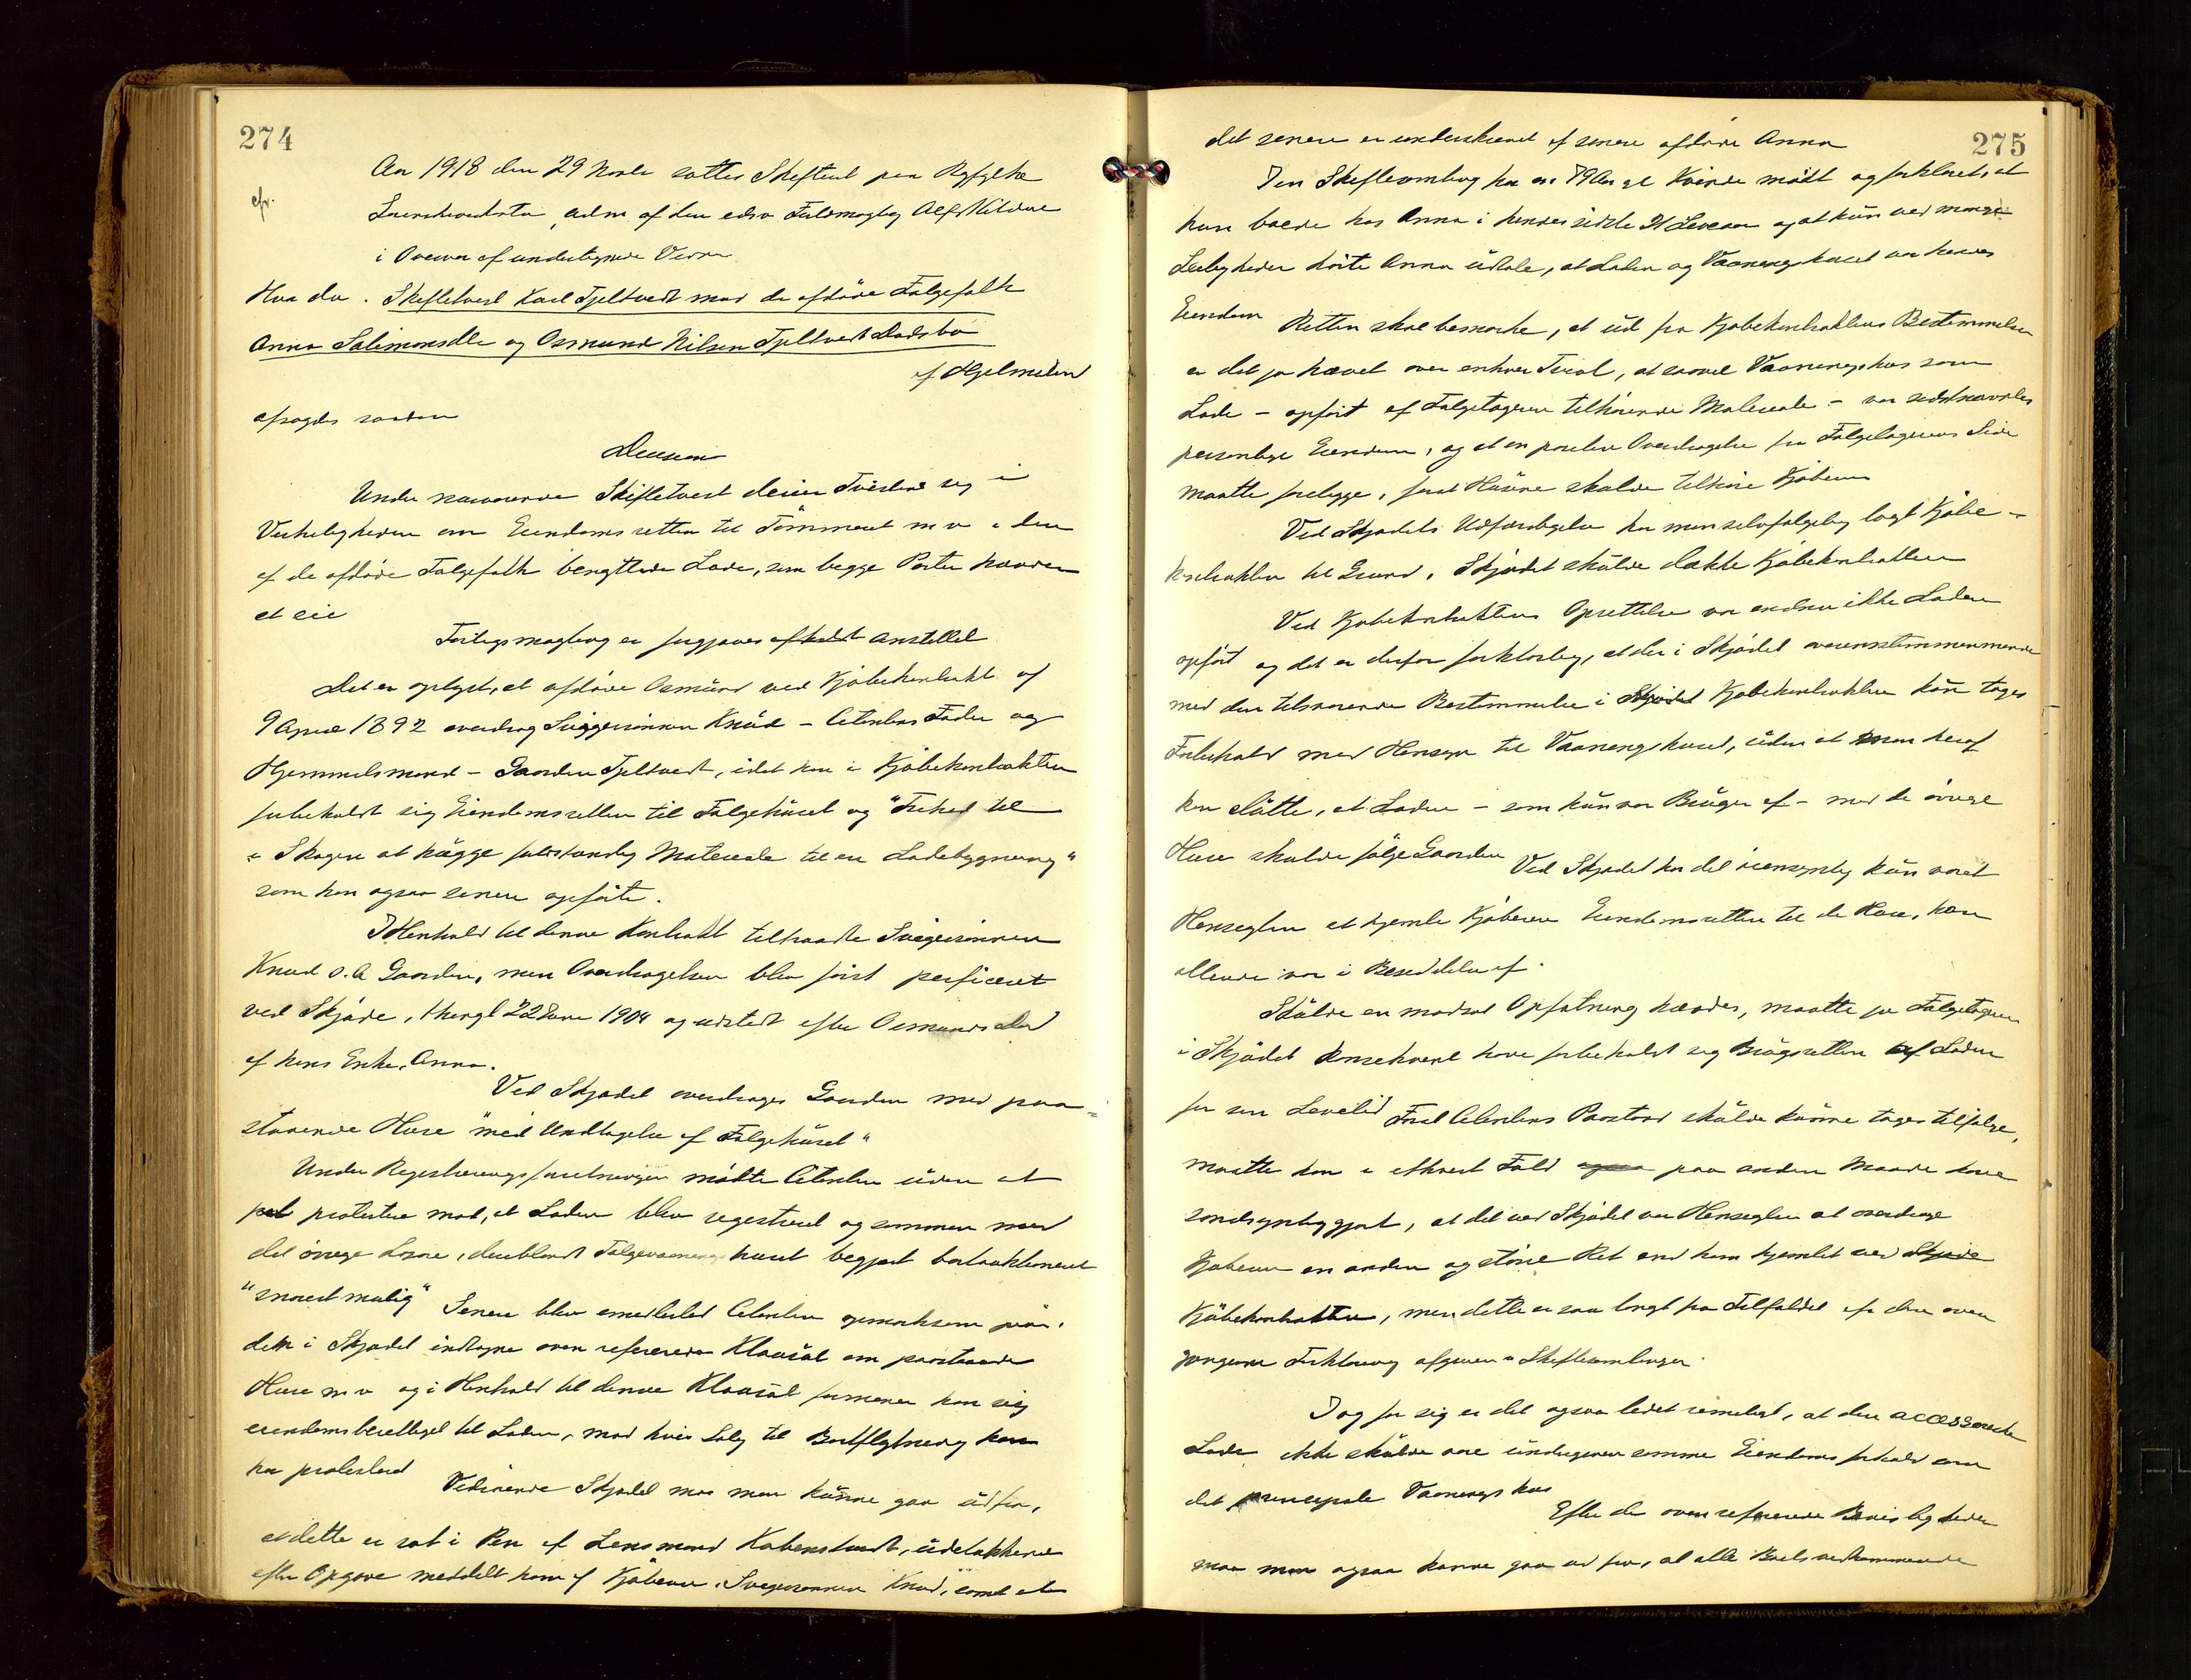 274
Aar 1918 den 29 Novbr sattes Skifteret paa Ryfylke
Sorenskriverkontor, adm af den edsv Fuldmægtig Alf Mildme
i Overvær af undertegnede Vidner
Hvor da: Skiftetvist Karl Tjeltvedt mod de afdøde Følgefolk
Anna Salimonsdtr og Osmund Nilsen Tjeltvedt Dødsbo
af Hjelmeland
afsagdes saadan
Decision
Under nærværende Skiftetvist dreier Tvisten sig i
Virkeligheden om Eiendomsretten til Tømmeret m v i den
af de afdøde Følgefolk benyttede Lade, som begge Parter hævder
at eie
Forligsmægling er forgjæves anstillet
Det er oplyst, at afdøde Osmund ved Kjøbekontrakt af
9 April 1892 overdrog Svigersønnen Knud - Citantens Fader og
Hjemmelsmand - Gaarden Tjeltvedt, idet han i Kjøbekontrakten
forbeholdt sig Eiendomsretten til Følgehuset og "Frihed til
i Skogen at hugge fuldstændig Materiale til en Ladebygning"
som han ogsaa senere opførte.
I Henhold til denne Kontrakt tiltraadte Svigersønnen
Knud o. A Gaarden, men Overdragelsen blev først perficeret
ved Skjøde, thingl 22 Juni 1904 og udstedt efter Osmunds Død
af hans Enke, Anna.
Ved Skjødet overdrages Gaarden med paa-
staaende Huse "med Undtagelse af Følgehuset"
Under Registreringsforretningen mødte Citanten uden at
protestere mod, at Laden blev registreret og sammen med
det øvrige Løsøre, deriblandt Følgevaaningshuset begjært bortauktioneret
"snarest mulig" Senere blev imidlertid Citanten opmærksom paa,
den i Skjødet indtagne oven refererede Klausul om paastaaende
Huse m v og i Henhold til denne Klausul formener han sig
eiendomsberettiget til Laden, mod hvis Salg til Bortflytning han
har protesteret
Vedrørende Skjødet maa man kunne gaa ud fra,
at dette er sat i Pen af Lensmand Kabenstvedt, udelukkende
efter Opgave meddelt ham af Kjøberen, Svigersønnen Knud, samt at
275
det senere er underskrevet af senere afdøde Anna
I en Skiftesamling har en 79 Aar gl Kvinde mødt og forklaret, at
hun boede hos Anna i hendes sidste 21 Leveaar og at hun ved mange
Leiligheder hørte Anna udtale, at Laden og Vaaningshuset var hendes
Eiendom
Retten skal bemærke, at ud fra Kjøbekontraktens Bestemmelser
er det jo hævet over enhver Tvivl, at saavel Vaaningshus som
Lade - opført af Følgetageren tilhørende Materiale - var sidstnævntes
personlige Eiendom, og at en positiv Overdragelse fra Følgetagerens Side
maatte foreligge, forat Husene skulde tilhøre Kjøberen
Ved Skjødets Udfærdigelse har man selvfølgelig lagt Kjøbe-
kontrakten til Grund. Skjødet skulde dække Kjøbekontrakten
Ved Kjøbekontraktens Oprettelse var endnu ikke Laden
opført og det er derfor forklarlig, at der i Skjødet overensstemmende
med den tilsvarende Bestemmelse i Kjøbekontrakten kun toges
Forbehold med Hensyn til Vaaningshuset, uden at man heraf
kan slutte, at Laden - som hun var Bruger af - med de øvrige
Huse skulde følge Gaarden
Ved Skjødet har det øiensynlig kun været
Hensigten at hjemle Kjøberen Eiendomsretten til de Huse, han
allerede var i Besiddelse af.
Skulde en modsat Opfatning hævdes, maatte jo Følgetageren
i Skjødet konsekvent have forbeholdt sig Brugsretten af Laden
for sin Levetid
Forat Citantens Paastand skulde kunne tages tilfølge,
maatte han i ethvert Fald paa anden Maade have
sandsynliggjort, at det ved Skjødet var Hensigten at overdrage
Kjøberen en anden og større Ret end ham hjemlet ved
Kjøbekontrakten, men dette er saa langt fra Tilfældet
Forklaring afgiven i Skiftesamlingen.
I og for sig er det ogsaa lidet rimeligt, at den accessoriske
Lade ikke skulde være undergiven samme Eiendomsforhold som
det principale Vaaningshus
Efter de oven refererede Bevisligheder
maa man ogsaa kunne gaa ud fra, at alle Boets vedkommende